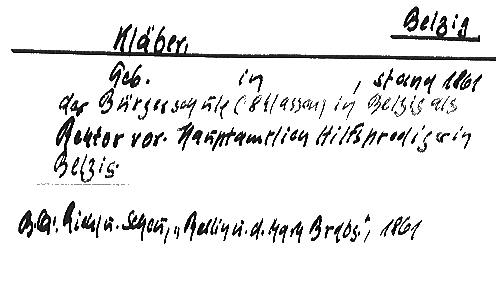 Belzig.
Kläber,
Geb. in , stand 1861
der Bürgerschule (8 Klassen) in Belzig als
Rektor vor. Hauptamtlich Hilfsprediger in
Belzig.
B.Qu. Riehl u. Scheu, „Berlin u. d. Mark Brdbg.", 1861